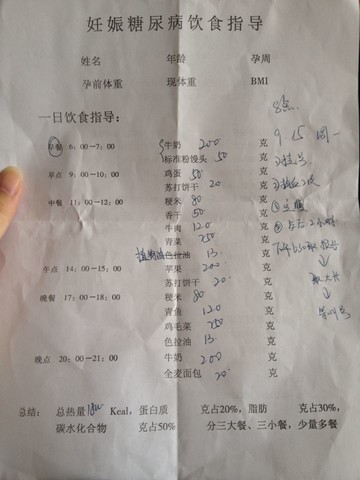 妊娠糖尿病饮食指导
姓名 年龄 孕周
孕前体重 现体重 BMI
8点
一日饮食指导: 9 15 周一
早餐 6:00-7:00 牛奶 200 克
标准粉馒头 50 克
早点 9:00-10:00 鸡蛋 50 克
苏打饼干 20 克
中餐 11:00-12:00 粳米 80 克
香干 50 克
牛肉 120 克
青菜 250 克
色拉油 13 克
午点 14:00-15:00 苹果 200 克
苏打饼干 20 克
晚餐 17:00-18:00 粳米 80 克
青鱼 120 克
鸡毛菜 250 克
色拉油 13 克
晚点 20:00-21:00 牛奶 200 克
全麦面包 20 克
总结: 总热量 Kcal,蛋白质 克占20%,脂肪 克占30%,
碳水化合物 克占50% 分三大餐、三小餐,少量多餐